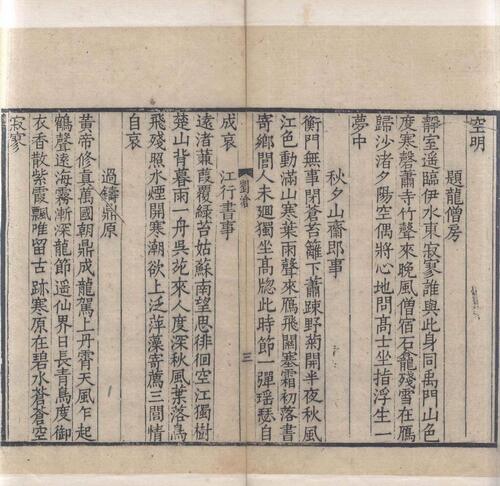 空明
題龍僧房
靜室遥臨伊水東寂寥誰與此身同禹門山色
度寒磬蕭寺竹聲來晚風僧宿石龕殘雪在雁
歸沙渚夕陽空偶將心地問高士坐指浮生一
夢中
秋夕山齋即事
衡門無事閉蒼苔籬下蕭踈野菊開半夜秋風
江色動滿山寒葉雨聲來雁飛關塞霜初落書
寄鄉閭人未廻獨坐高牕此時節一彈瑶瑟自
劉滄
三
成哀
江行書事
遠渚蒹葭覆綠苔姑蘇南望思徘徊空江獨樹
楚山背暮雨一舟吳苑來人度深秋風葉落鳥
飛殘照水煙開寒潮欲上泛萍藻寄薦三閭情
自哀
過鑄鼎原
黃帝修真萬國朝鼎成龍駕上丹霄天風乍起
鶴聲遠海霧漸深龍節遥仙界日長青鳥度御
衣香散紫霞飄唯留古跡寒原在碧水蒼蒼空
寂寥